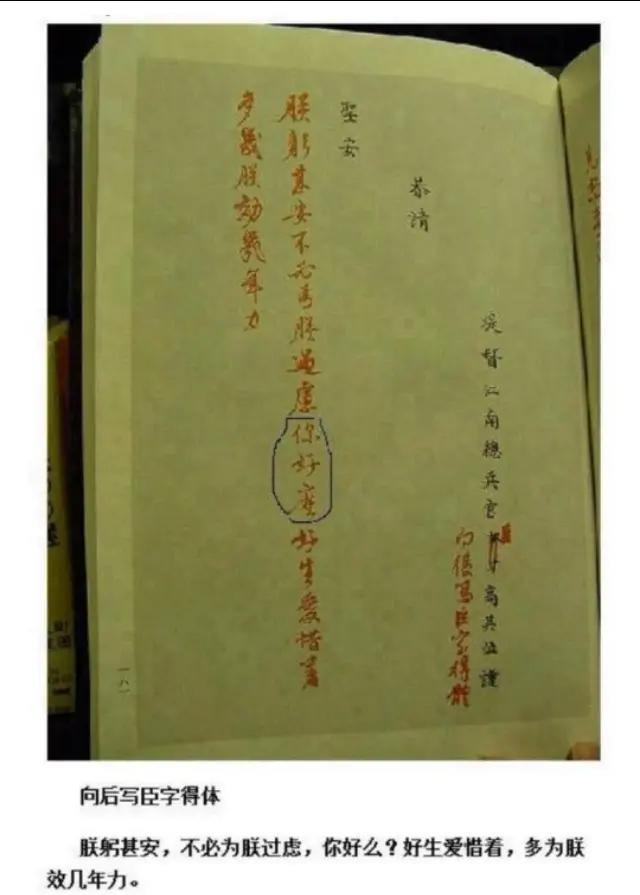 提督江南總兵官臣高其位謹
向後寫臣字得體
恭請
聖安
朕躬甚安不必為朕過慮你好麼好生愛惜着
多幾朕効幾年力
一八一
向后写臣字得体
朕躬甚安，不必为朕过虑，你好么？好生爱惜着，多为朕
效几年力。